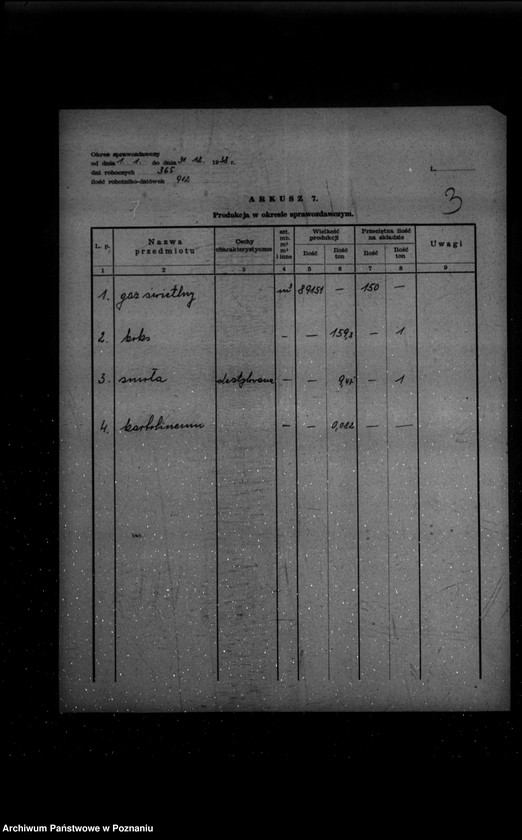 Okres sprawozdawczy
od dnia 1. 1. do dnia 31 12. 1938 r.
dni roboczych 365
ilość robotniko-dniówek 912
L.
3
ARKUSZ 7.
Produkcja w okresie sprawozdawczym.
L. p. Nazwa przedmiotu Cechy charakterystyczne szt. mb. m² m³ i inne Wielkość produkcji Ilość Ilość ton Przeciętna ilość na składzie Ilość Ilość ton Uwagi
1 2 3 4 5 6 7 8 9
1. gaz świetlny m³ 89151 — 150 —
2. koks — — 159,3 — 1
3. smoła destylowana — — 9,47 — 1
4. karbolineum — — 0,082 — —
Archiwum Państwowe w Poznaniu